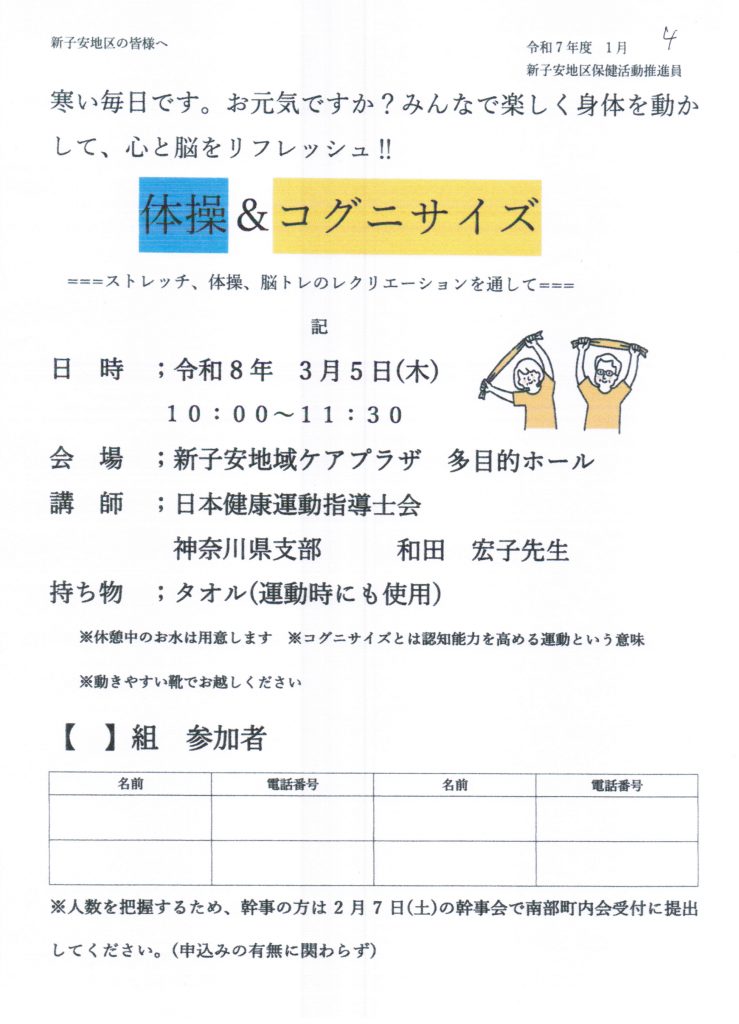 新子安地区の皆様へ
令和７年度　１月
4
新子安地区保健活動推進員
寒い毎日です。お元気ですか？みんなで楽しく身体を動か
して、心と脳をリフレッシュ!!
体操＆コグニサイズ
===ストレッチ、体操、脳トレのレクリエーションを通して===
記
日　時　；令和８年　３月５日(木)
１０：００～１１：３０
会　場　；新子安地域ケアプラザ　多目的ホール
講　師　；日本健康運動指導士会
神奈川県支部　　　和田　宏子先生
持ち物　；タオル(運動時にも使用)
※休憩中のお水は用意します　※コグニサイズとは認知能力を高める運動という意味
※動きやすい靴でお越しください
【　】組　参加者
名前　電話番号　名前　電話番号
※人数を把握するため、幹事の方は２月７日(土)の幹事会で南部町内会受付に提出
してください。(申込みの有無に関わらず)